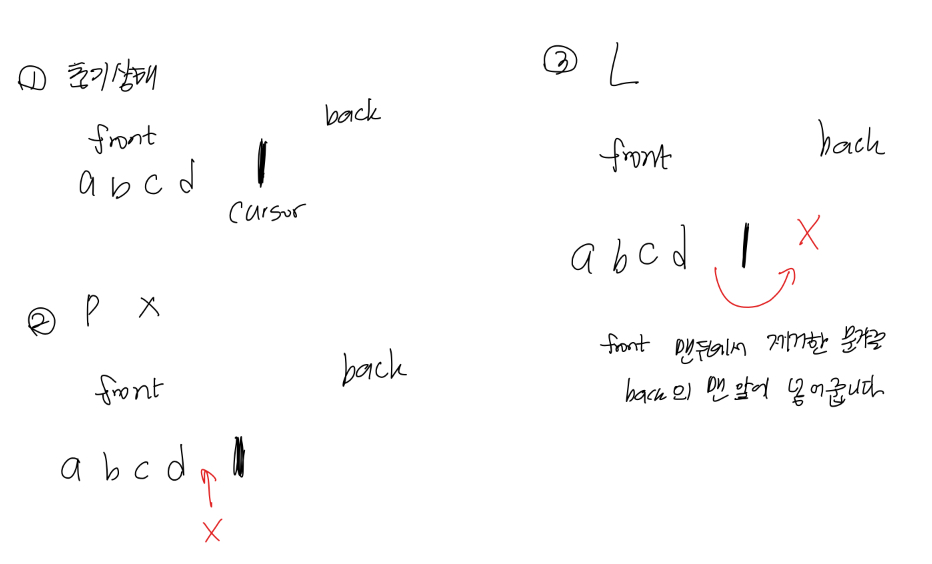 ① 초기상태
front back
a b c d
cursor
② P x
front back
a b c d
x
③ L
front back
a b c d x
front 맨뒤에서 제거한 문자를
back의 맨 앞에 넣어줍니다